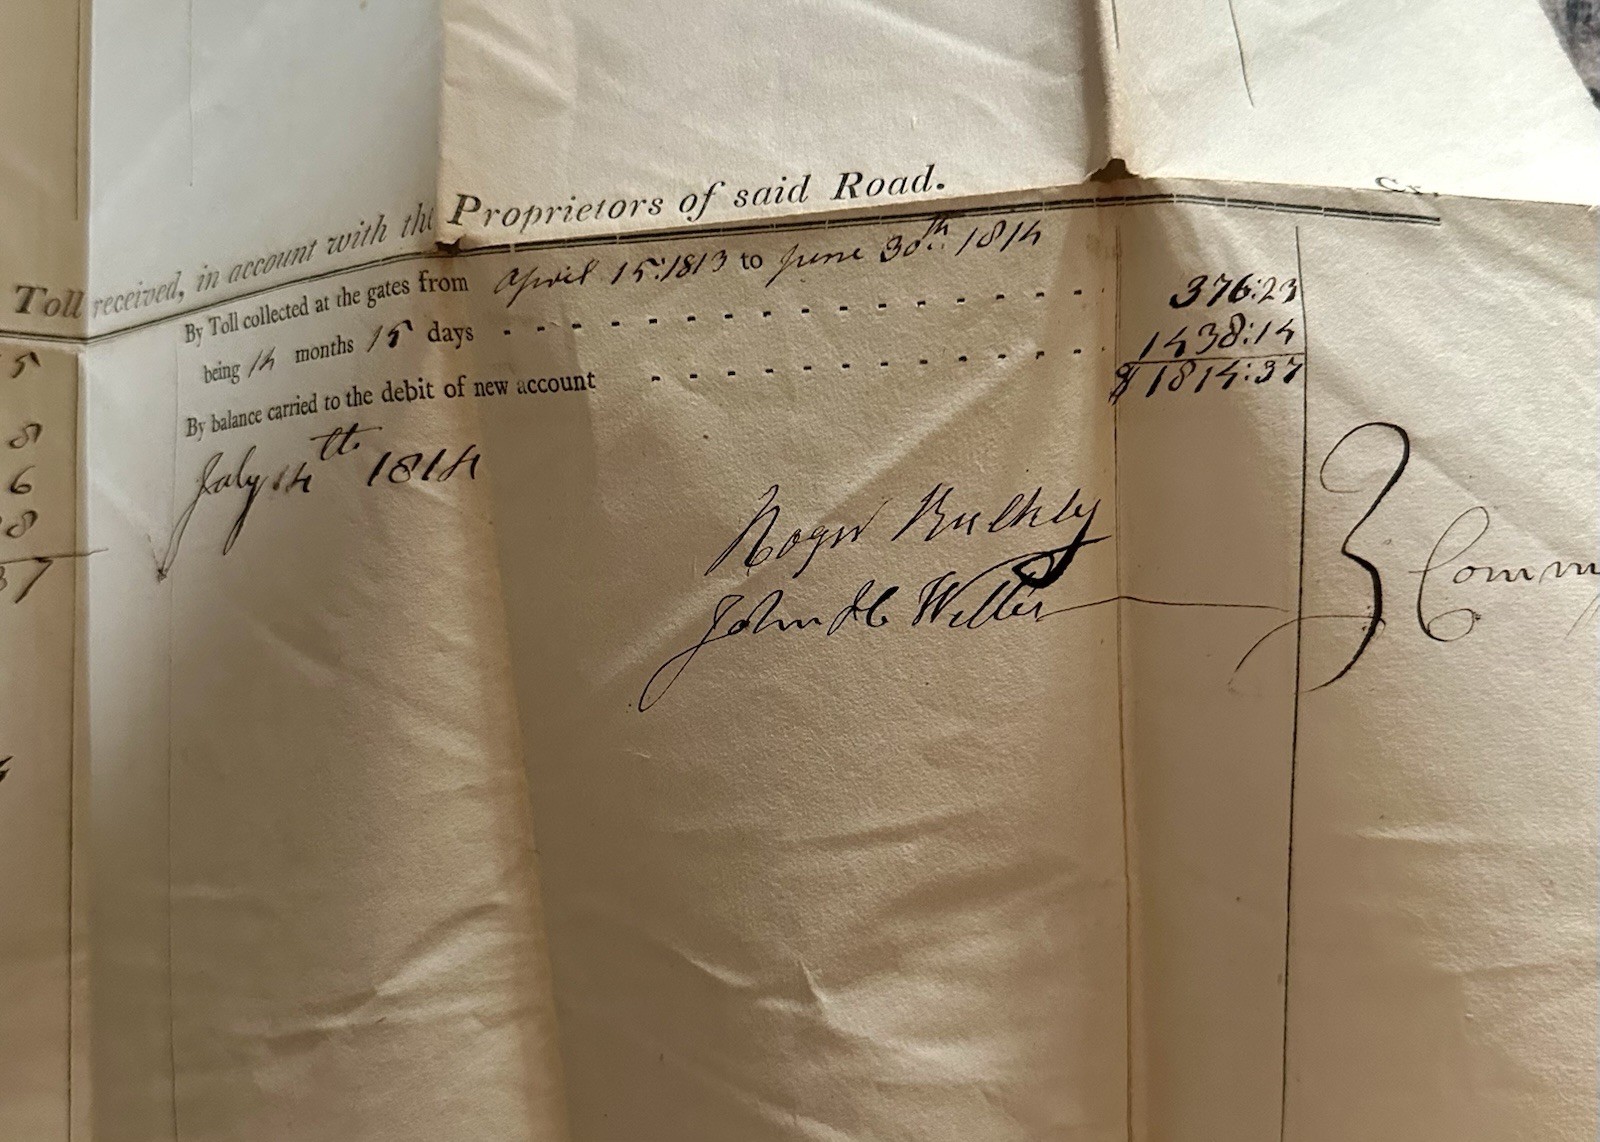 Toll received, in account with the Proprietors of said Road. Cr.
By Toll collected at the gates from April 15:1813 to June 30th 1814
being 14 months 15 days 376:23
By balance carried to the debit of new account 1438:14
$ 1814:37
July 14th 1814
Roger Bulkley
John H
Comm
5
8
6
8
37